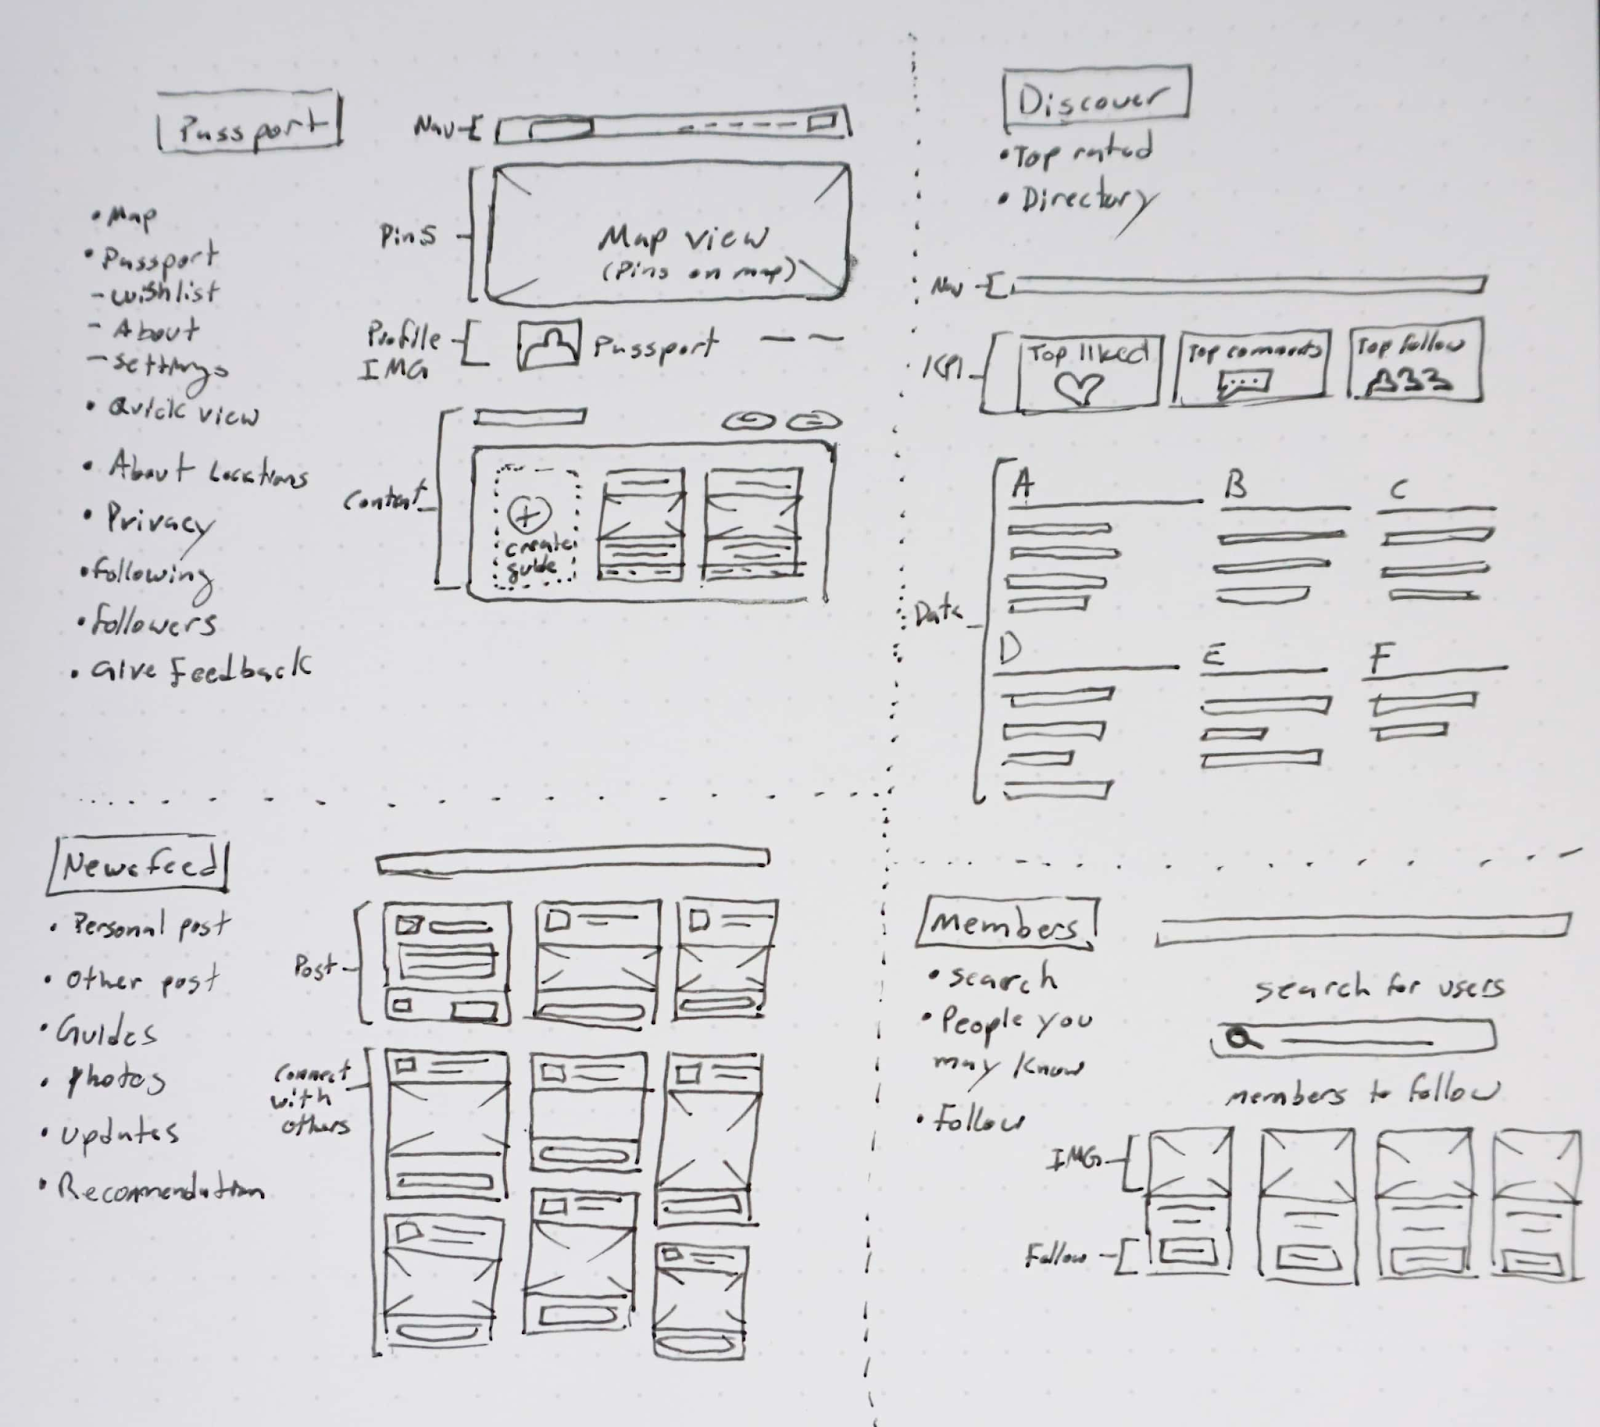 Passport
• Map
• Passport
- wishlist
- About
- settings
• Quick view
• About Locations
• Privacy
• following
• followers
• Give Feedback
Nav
Pins
Map view
(Pins on map)
Profile
IMG
Passport
Content
create
guide
Discover
• Top rated
• Directory
Nav
KPI
Top liked
Top comments
Top follow
Data
A
B
C
D
E
F
Newsfeed
• Personal post
• Other post
• Guides
• Photos
• updates
• Recommendation
Post
Connect
with
others
Members
• search
• People you
may know
• Follow
search for users
members to follow
IMG
Follow